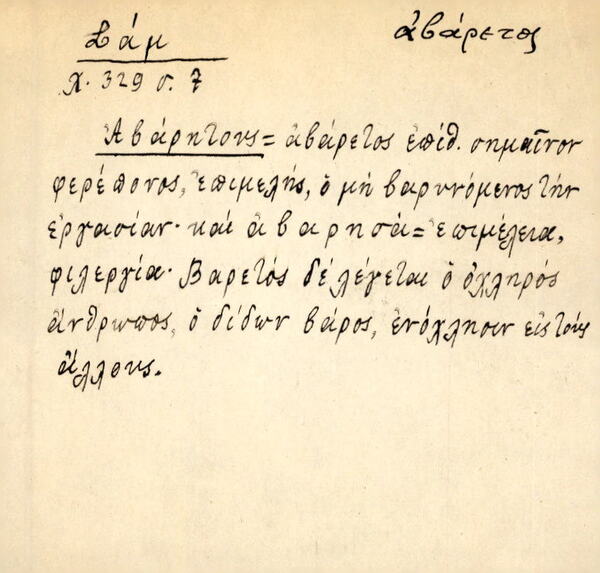 Σάμ
ἀβάρετος
χ. 329 σ. 7
Ἀβάρητους = ἀβάρετος ἐπίθ. σημαῖνον
φερέπονος, ἐπιμελής, ὁ μή βαρυνόμενος τήν
ἐργασίαν· καί ἀβαρησά = ἐπιμέλεια,
φιλεργία· Βαρετός δέ λέγεται ὁ ὀχληρός
ἄνθρωπος, ὁ δίδων βάρος, ἐνόχλησιν εἰς τούς
ἄλλους.